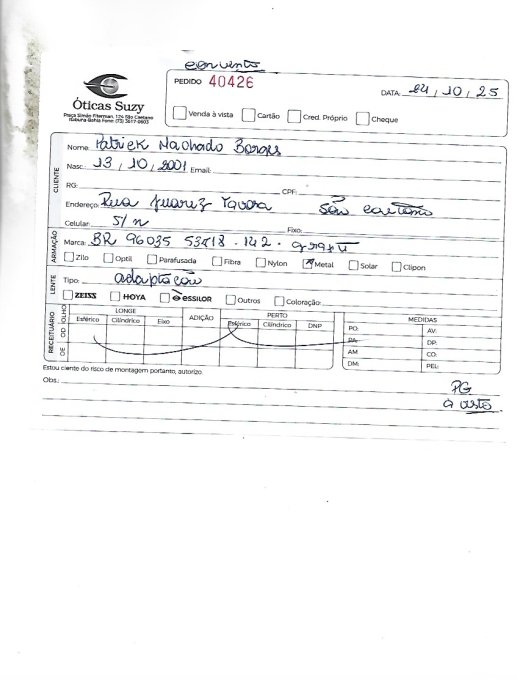 convento
PEDIDO 40426
DATA: 24 / 10 / 25
Óticas Suzy
Praça Simão Fiterman, 124 São Caetano
Itabuna-Bahia Fone: (73) 3617-0603
Venda à vista Cartão Cred. Próprio Cheque
CLIENTE
Nome: Patrick Machado Borges
Nasc.: 13 / 10 / 2001 Email:
RG: CPF:
Endereço: Rua Juarez Tavora São Caetano
Celular: S/n Fixo:
ARMAÇÃO
Marca: BR 96035 53418 . 142 .
Zilo Optil Parafusada Fibra Nylon Metal Solar Clipon
LENTE
Tipo: adaptação
ZEISS HOYA essilor Outros Coloração:
RECEITUÁRIO
OLHO LONGE ADIÇÃO PERTO MEDIDAS
Esférico Cilíndrico Eixo Esférico Cilíndrico DNP
OD PO: AV:
PA: DP:
OE AM CO:
DM: PEL:
Estou ciente do risco de montagem portanto, autorizo.
Obs.: PG
a vista